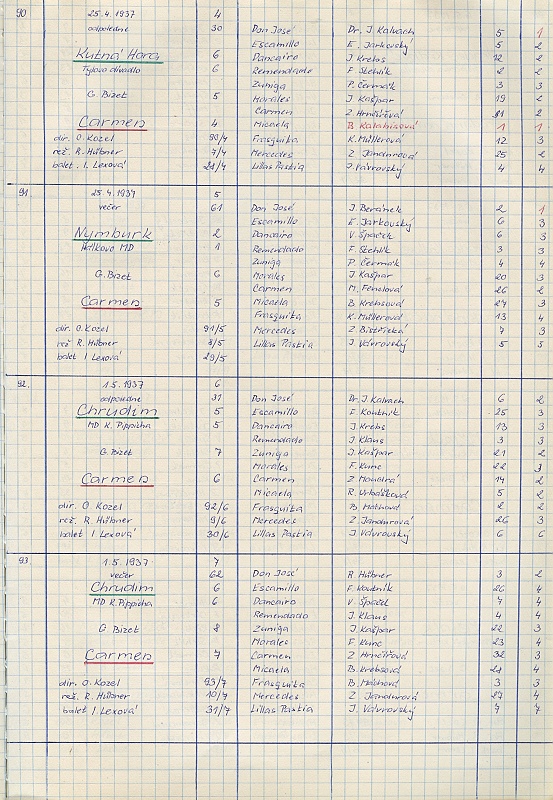 90 25.4.1937 4
odpoledne 30 Don José Dr. J Kalvach 5 1
Escamillo E. Jarkovský 5 2
Kutná Hora 6 Dancairo J Krebs 12 2
Tylovo divadlo 6 Remendado F. Stehlík 2 2
Zuniga P. Čermák 3 3
G. Bizet 5 Morales J Kašpar 19 2
Carmen Z. Hrnčířová 31 2
Carmen 4 Micaela B Kalabisová 1 1
dir. O. Kozel 90/4 Frasquita K. Müllerová 12 3
rež. R. Hübner 7/4 Mercedes Z Janderová 25 2
balet. I. Lexová 28/4 Lillas Pastia J. Vávrovský 4 4
91. 25.4.1937 5
večer 61 Don José J. Beránek 2 1
Escamillo E. Jarkovský 6 3
Nymburk 2 Dancairo V. Špaček 6 3
Hálkovo MD 1 Remendado F. Stehlík 3 3
Zuniga P. Čermák 4 4
G. Bizet 6 Morales J Kašpar 20 3
Carmen M. Fenclová 26 2
Carmen 5 Micaela B Krebsová 27 3
Frasquita K. Müllerová 13 4
dir. O. Kozel 91/5 Mercedes Z Bistřická 7 3
rež R. Hübner 8/5 Lillas Pastia J Vávrovský 5 5
balet I Lexová 29/5
92. 1.5.1937 6
odpoledne 31 Don José Dr. J Kalvach 6 2
Chrudim 5 Escamillo F. Koutník 25 3
MD K. Pippicha 5 Dancairo J Krebs 13 3
Remendado J Klaus 3 3
G. Bizet 7 Zuniga J. Kašpar 21 2
Morales F. Kunc 22 3
Carmen 6 Carmen Z 14 2
Micaela R. Urbášková 5 2
dir. O Kozel 92/6 Frasquita B Máchová 2 2
rež. R. Hübner 9/6 Mercedes Z. Janderová 26 3
balet I Lexová 30/6 Lillas Pastia J Vávrovský 6 6
93. 1.5.1937 7
večer 62 Don José R. Hübner 3 2
Chrudim 6 Escamillo F. Koutník 26 4
MD K. Pippicha 6 Dancairo V. Špaček 7 4
Remendado J Klaus 4 4
G Bizet 8 Zuniga J Kašpar 22 3
Morales F. Kunc 23 4
Carmen 7 Carmen Z Hrnčířová 32 3
Micaela B. Krebsová 28 4
dir. O. Kozel 93/7 Frasquita B. Máchová 3 3
rež. R. Hübner 10/7 Mercedes Z Janderová 27 4
balet I Lexová 31/7 Lillas Pastia J. Vávrovský 7 7